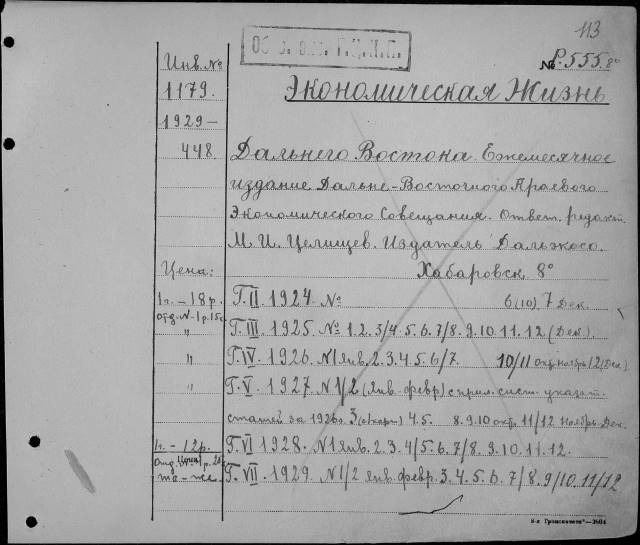 113
Инв. №
№ Р.555. 8°
1179.
Экономическая Жизнь
1929 –
448.
Дальнего Востока. Ежемесячное
издание Дальне-Восточного Краевого
Экономического Совещания. Ответ. редакт.
М. И. Целищев. Издатель Дальэкосо.
Цена:
Хабаровск 8°
1 г. – 18 р.
Г. II 1924. № 6 (10). 7 Дек.
отд. № – 1 р. 15 к.
" Г. III 1925. № 1. 2. 3/4. 5. 6. 7/8. 9. 10. 11. 12 (Дек.).
" Г. IV 1926. № 1 Янв. 2. 3. 4. 5. 6/7. 10/11 окт. ноябрь 12 (Дек)
" Г. V 1927. № 1/2 (Янв. февр) с прил. сист. указат.
статей за 1926 г. 3 (март) 4. 5. 8. 9. 10 окт. 11/12 Ноябрь. Дек.
1 г. – 12 р. Г. VI 1928. № 1 Янв. 2. 3. 4/5. 6. 7/8. 9. 10. 11. 12.
Г. VII 1929. № 1/2 янв. февр. 3. 4. 5. 6. 7/8. 9/10. 11/12